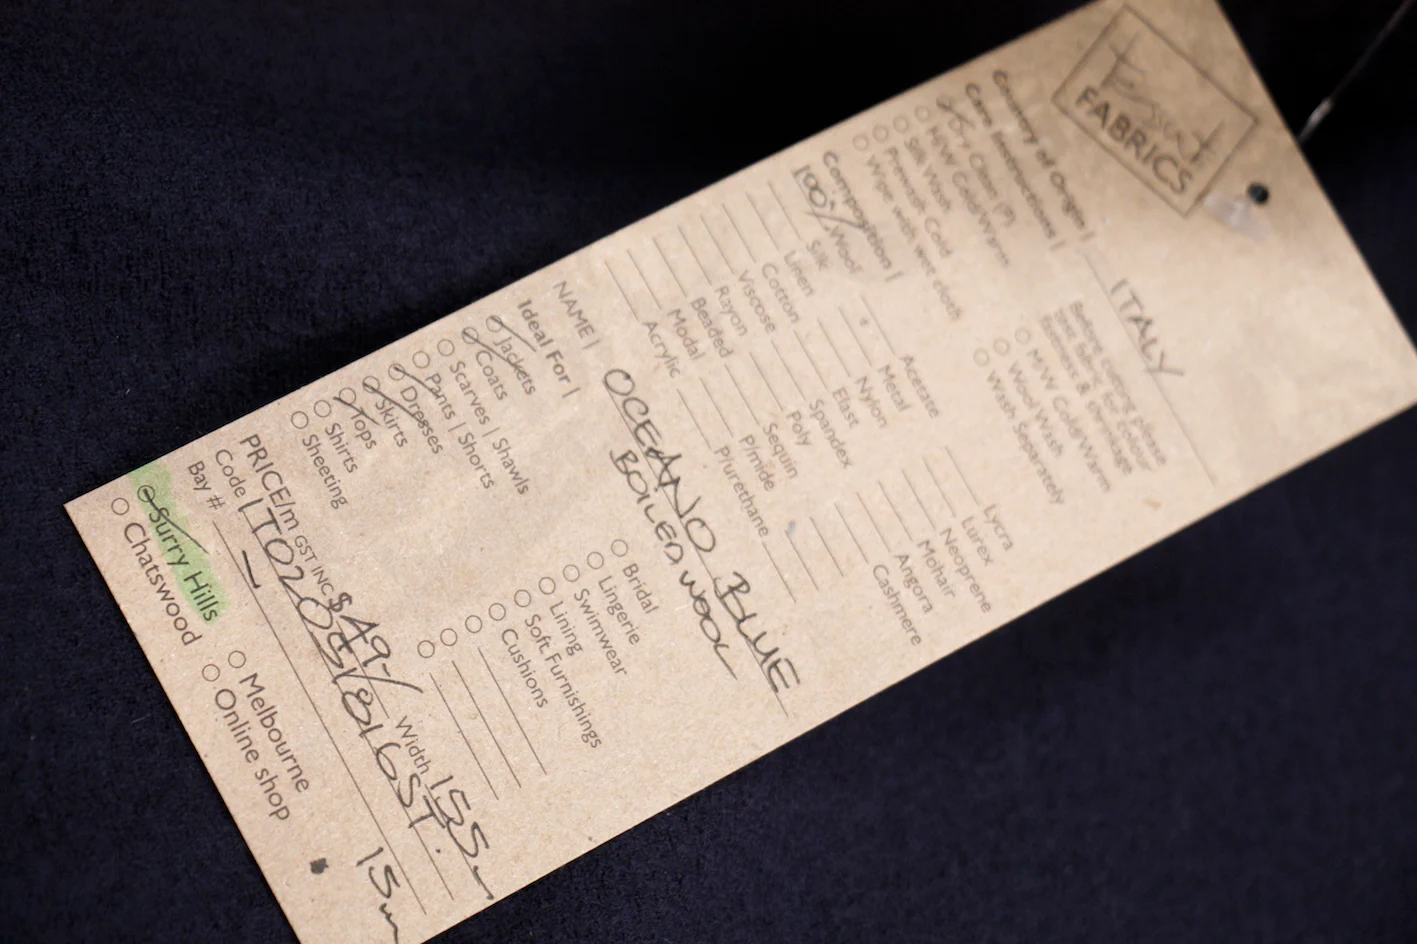 Tessuti
FABRICS
Country of Origin | ITALY
Care Instructions |
Before cutting please
test fabric for colour
fastness & shrinkage
Dry Clean (P)
H/W Cold/Warm
Silk Wash
Prewash Cold
Wipe with wet cloth
M/W Cold/Warm
Wool Wash
Wash Separately
Composition |
100% Wool
Silk
Linen
Cotton
Viscose
Rayon
Beaded
Modal
Acrylic
Acetate
Metal
Nylon
Elast
Spandex
Poly
Sequin
P/mide
P/urethane
Lycra
Lurex
Neoprene
Mohair
Angora
Cashmere
NAME | OCEANO BLUE
BOILED WOOL
Ideal For |
Jackets
Coats
Scarves | Shawls
Pants | Shorts
Dresses
Skirts
Tops
Shirts
Sheeting
Bridal
Lingerie
Swimwear
Lining
Soft Furnishings
Cushions
PRICE/m GST INC $49-/ Width 155m
Code |
Bay #
15m
Surry Hills
Chatswood
Melbourne
Online shop